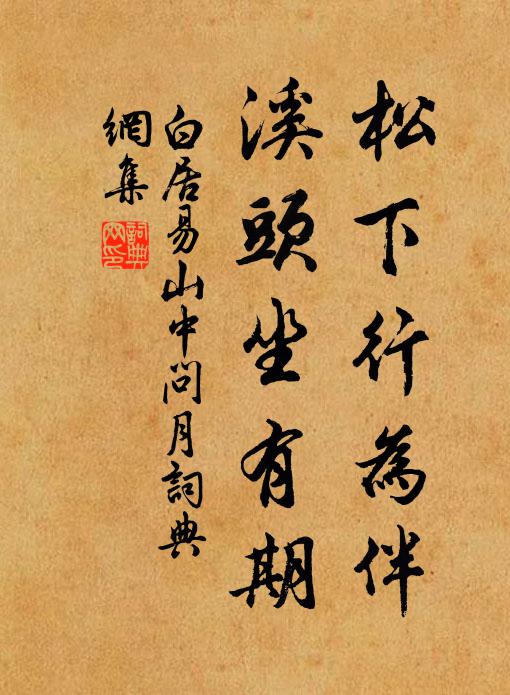 松下行為伴
溪頭坐有期
白居易山中問月詞典
網集
詞典
网印